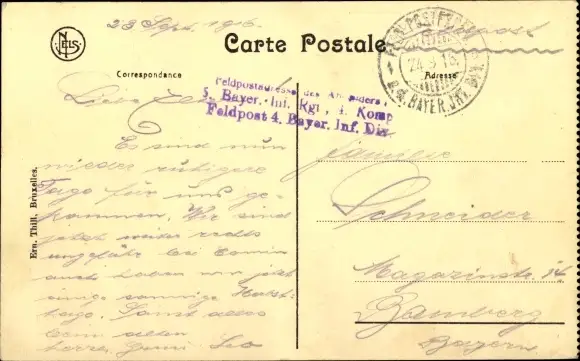 23 Sept. 1916.
NELS
Carte Postale
Feldpost
Correspondance
Adresse
24.9.16
D. 4. BAYER. INF. DIV.
Feldpostadresse des Absenders:
5. Bayer. Inf. Rgt., 4. Komp
Feldpost 4. Bayer. Inf. Div.
Ern. Thill, Bruxelles.
Es sind nun
wieder ruhigere
Tage für uns ge-
kommen. Wir sind
jetzt weiter rechts
ungefähr bei
auch haben wir jetzt
einige sonnige Herbst-
tage. Sonst alles
beim alten
Leo
Familie
Schneider
Magazinstr. 14
Bamberg
Bayern